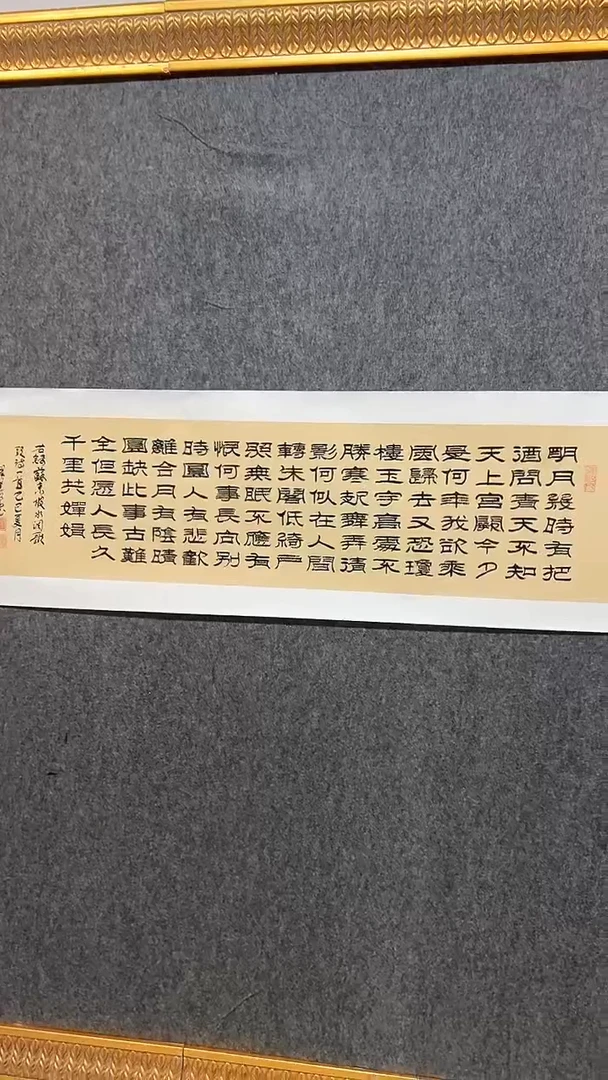 明月幾時有把
酒問青天不知
天上宮闕今夕
是何年我欲乘
風歸去又恐瓊
樓玉宇高處不
勝寒起舞弄清
影何似在人間
轉朱閣低綺戶
照無眠不應有
恨何事長向別
時圓人有悲歡
離合月有陰晴
圓缺此事古難
全但願人長久
千里共嬋娟
右錄蘇東坡水調歌
頭詞一首乙巳夏月